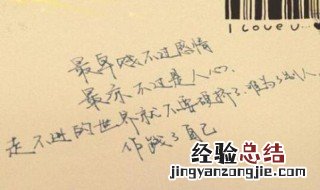 I love u...
最卑贱不过感情
最凉不过是人心.
走不进的世界就不要硬挤了,难为了别人,
作贱了自己
经验总结